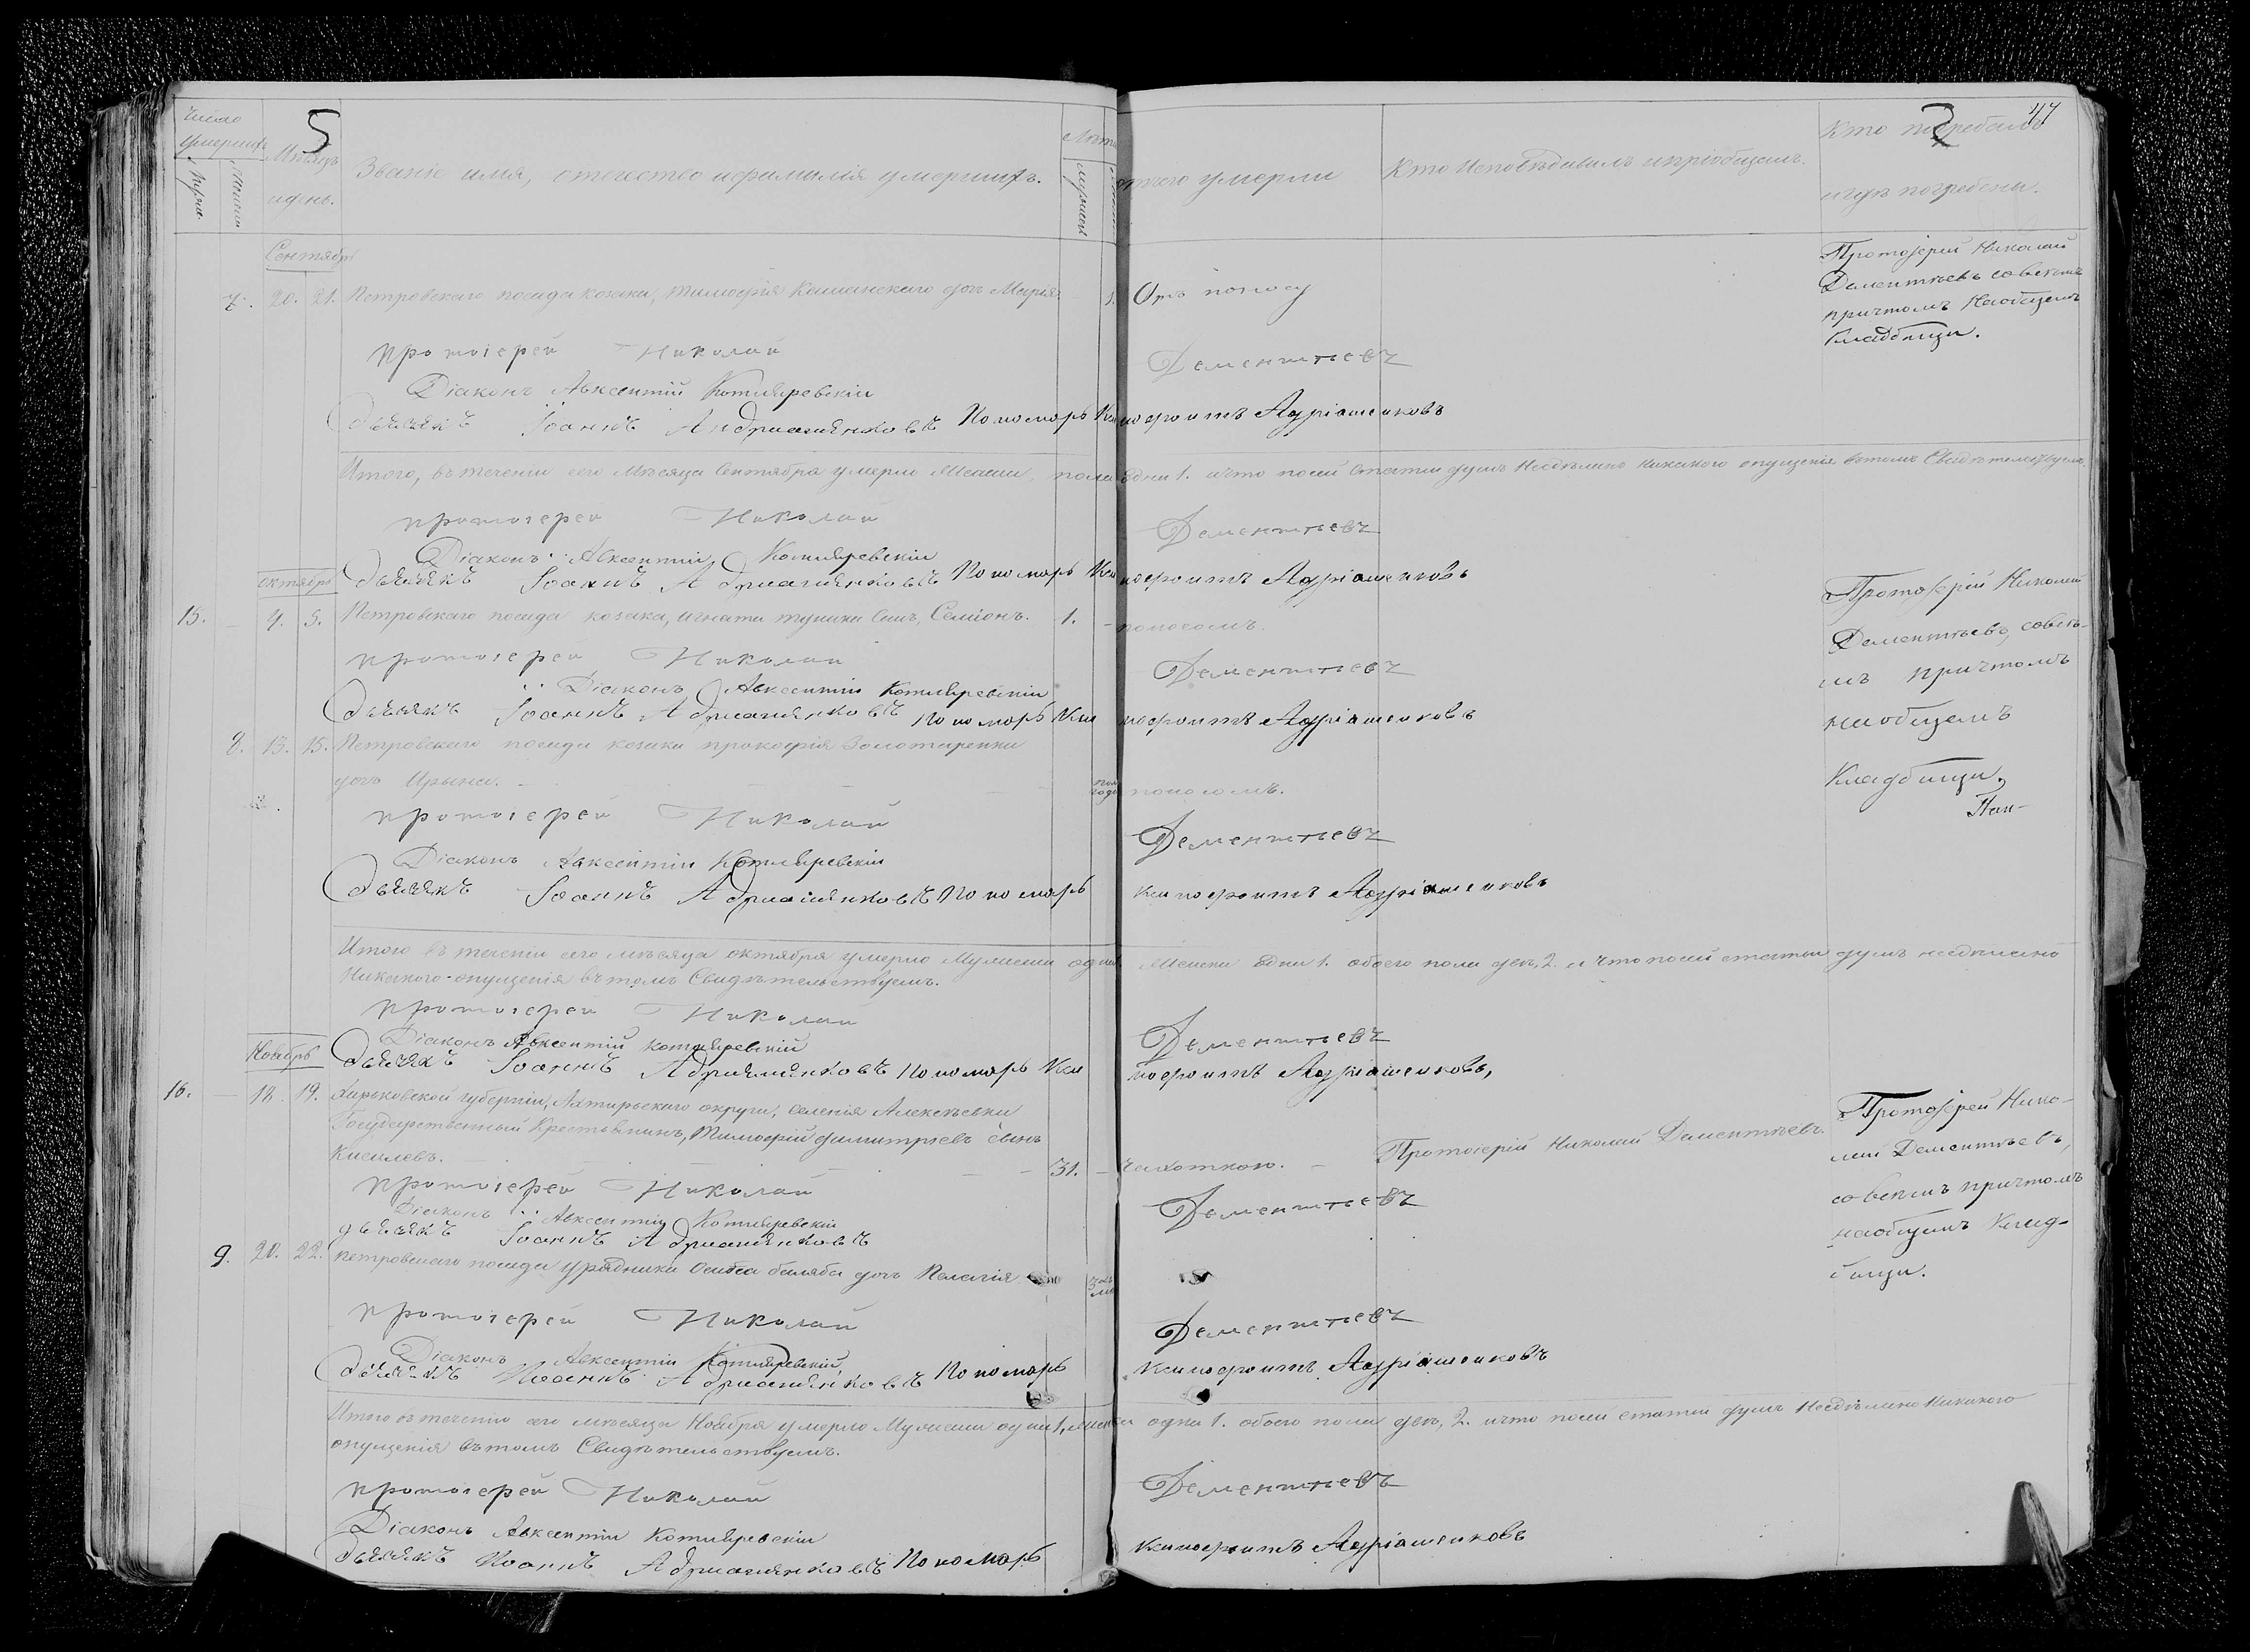 Число умершихъ
Мужеска
Женска
Мѣсяцъ и день.
5
Званіе имя, отечество и фамилія умершихъ.
Лѣта
мужеска
отчего умерли
Кто исповѣдывалъ и пріобщалъ.
Кто погребалъ
и гдѣ погребены.
2
47
Сентябрь
7. 20. 21. Петровскаго посада козака, Тимофѣя дочь Марія. 1. Отъ поносу
Протоіерей Николай
Дементьевъ со всемъ
причтомъ на общемъ
кладбищи.
протоіерей Николай Дементьевъ
Діаконъ Авксентій Котляревскій
Дьячекъ Іоаннъ Адриашенковъ Пономарь Ксенофонтъ Адріашенковъ
Итого, въ теченіи сего мѣсяца Сентября умерло Женска пола одна 1. и что посей статьи душъ несдѣлано никакого опущенія вътомъ Свидѣтельствуемъ.
протоіерей Николай Дементьевъ
Діаконъ Авксентій Котляревскій
Дьячекъ Іоаннъ Адриашенковъ Пономарь Ксенофонтъ Адріашенковъ
октябрь
15. 4. 5. Петровскаго посада козака, Игната сынъ, Семіонъ. 1. поносомъ.
Протоіерей Николай
Дементьевъ, со всѣ-
мъ причтомъ
на общемъ
Кладбищи,
протоіерей Николай Дементьевъ
Діаконъ Авксентій Котляревскій
Дьячекъ Іоаннъ Адриашенковъ Пономарь Ксенофонтъ Адріашенковъ
8. 13. 15. Петровскаго посада козака прокофія Золотаренка
дочь Ирына. пол года поносомъ.
протоіерей Николай Дементьевъ
Діаконъ Авксентій Котляревскій
Дьячекъ Іоаннъ Адриашенковъ Пономарь Ксенофонтъ Адріашенковъ
Итого въ теченіи сего мѣсяца октября умерло Мужеска одинъ Женска одна 1. обоего пола две, 2. и что посей статьи душъ несдѣлано
Никакого опущенія вътомъ Свидѣтельствуемъ.
протоіерей Николай Дементьевъ
Діаконъ Авксентій Котляревскій
Дьячекъ Іоаннъ Адриашенковъ Пономарь Ксенофонтъ Адріашенковъ,
Ноябрь
16. 18. 19. Харьковской губерніи, Ахтырьскаго округи, селенія Алексѣевки
Государственный Крестьянинъ, Тимофѣй димитріевъ сынъ
Киселевъ. 31. чахоткою. Протоіерій Николай Дементьевъ.
Протоіерей Нико-
лай Дементьевъ,
со всемъ причтомъ
на общемъ Клад-
бищи.
протоіерей Николай Дементьевъ
Діаконъ Авксентій Котляревскій
Дьячекъ Іоаннъ Адриашенковъ
9. 20. 22. Петровскаго посада урядника Осипа дочь Пелагія
протоіерей Николай Дементьевъ
Діаконъ Авксентій Котляревскій
Дьячекъ Иоаннъ Адриашенковъ Пономарь Ксенофонтъ Адріашенковъ
Итого въ теченіи сего мѣсяца Ноября умерло Мужеска одинъ 1, женска одна 1. обоего пола две, 2. и что посей статьи душъ несдѣлано Никакого
опущенія вътомъ Свидѣтельствуемъ.
протоіерей Николай Дементьевъ
Діаконъ Авксентій Котляревскій
Дьячекъ Иоаннъ Адриашенковъ Пономарь Ксенофонтъ Адріашенковъ